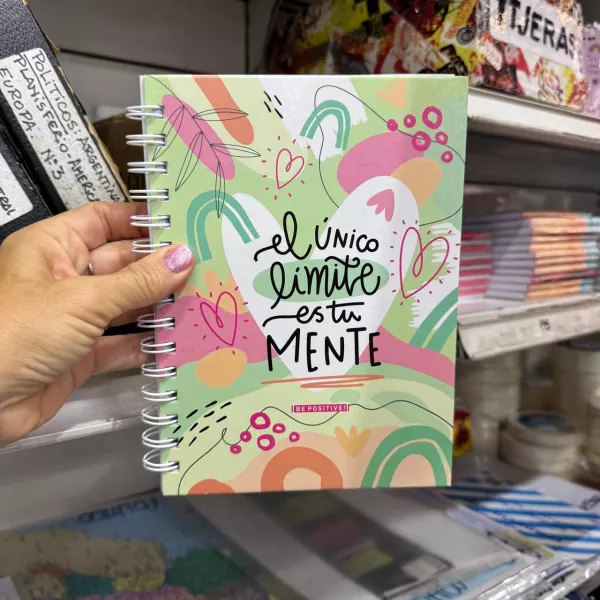 POLITICOS: ARGENTINA
PLANISFERIO-AMERICA
EUROPA Nº3
TIJERAS
el ÚNICO
límite
es tu
MENTE
¡BE POSITIVE!